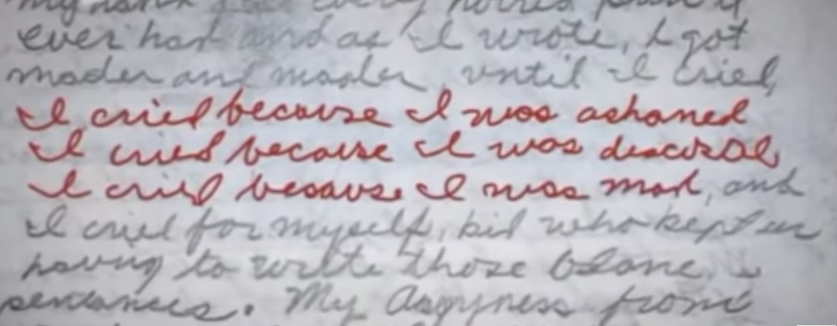 ever had and as I wrote, I got
mader and mader until I cried,
I cried because I was ashamed
I cried because I was
I cried because I was mad, and
I cried for myself, kid who kept on
having to write those
sentences. My Angryness from